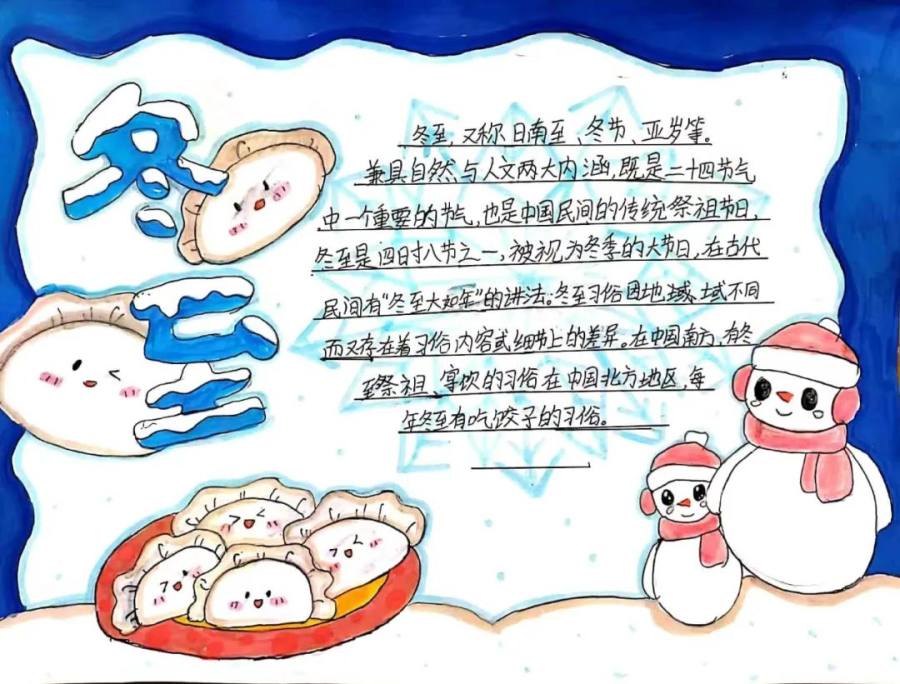 冬至
冬至,又称日南至、冬节、亚岁等。
兼具自然与人文两大内涵,既是二十四节气
中一个重要的节气,也是中国民间的传统祭祖节日,
冬至是四时八节之一,被视为冬季的大节日,在古代
民间有"冬至大如年"的讲法。冬至习俗因地域域不同
而又存在着习俗内容或细节上的差异。在中国南方,有冬
至祭祖、宴饮的习俗在中国北方地区,每
年冬至有吃饺子的习俗。